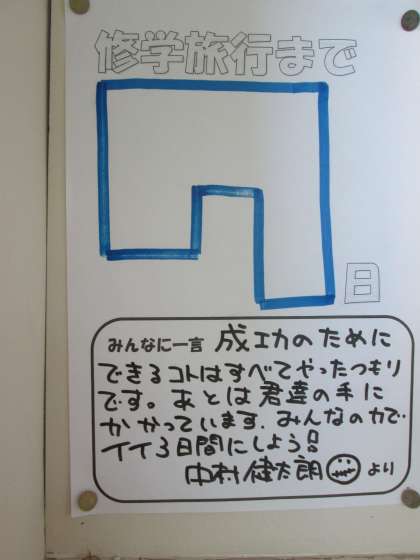 修学旅行まで
7
日
みんなに一言 成功のために
できるコトはすべてやったつもり
です。あとは君達の手に
かかっています.みんなの力で
イイ3日間にしよう!!
中村健太朗 より